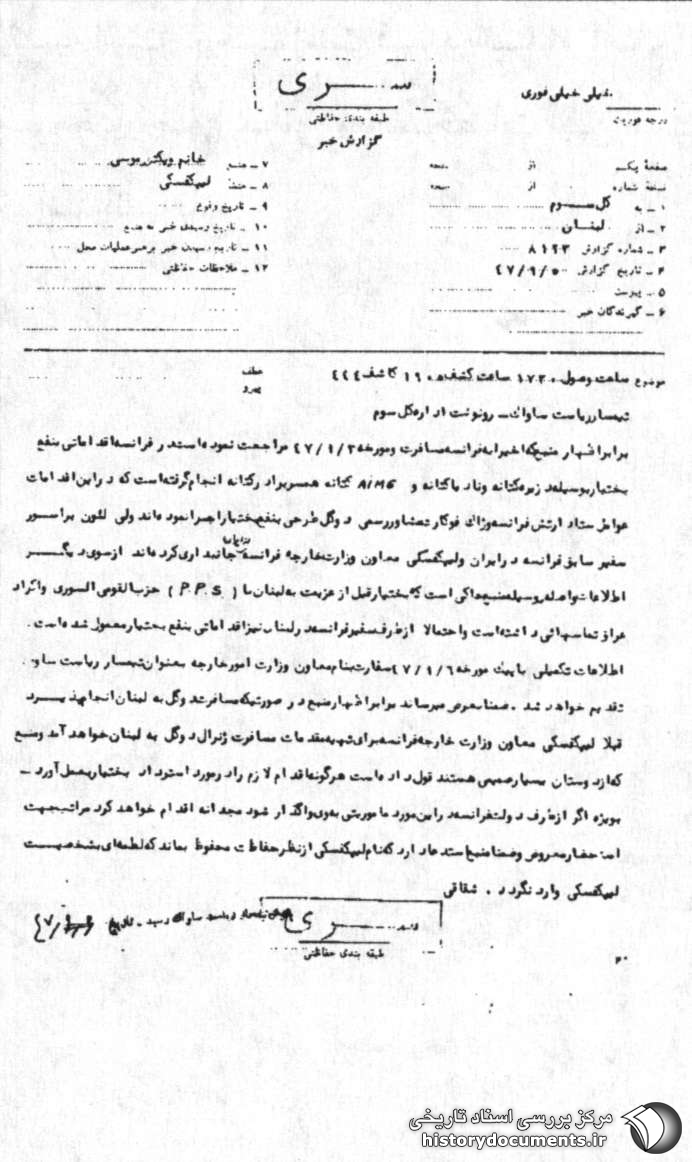 خیلی خیلی فوری
درجه فوریت
ســـری
طبقه بندی حفاظتی
گزارش خبر
صفحهٔ یکم از صفحه
نسخهٔ شماره از نسخه
۱ ـ به کل ســوم
۲ ـ از لبنــان
۳ ـ شماره گزارش ۸۱۲۳
۴ ـ تاریخ گزارش
۵ ـ پیوست
۶ ـ گیرندگان خبر
۷ ـ منبع خانم ویکتر موسی
۸ ـ منشأ لیپکفسکی
۹ ـ تاریخ وقوع
۱۰ ـ تاریخ رسیدن خبر به منبع
۱۱ ـ تاریخ رسیدن خبر برهبر عملیات محل
۱۲ ـ ملاحظات حفاظتی
موضوع ساعت وصول ۱۷۳۰ ساعت کشف ۱۹۰۰ کاشف ۴۴۴
عطف
پیرو
تیمسار ریاست ساواک ـ رونوشت اداره کل سوم
برابر اظهار منبع که اخیرا به فرانسه مسافرت و مورخه ۴۷/۹/۳ مراجعت نموده است در فرانسه اقداماتی بنفع
بختیار بوسیله دزیره کتانه و نادیا کتانه و AiMé کتانه همسر برادر کتانه انجام گرفته است که در این اقدامات
عوامل ستاد ارتش فرانسه و ژاک فوکار تـ مشاور رسمی دوگل طرحی بنفع بختیار اجرا نموده اند ولی لئون براسور
سفیر سابق فرانسه در ایران و لیپکفسکی معاون وزارت خارجه فرانسه جانبداری کرده اند ازسوی دیگــر
اطلاعات واصله بوسیله منبع حاکی است که بختیار قبل از عزیمت به لبنان با ( P.P.S ) حزب القومی السوری واکراد
عراق تماسهائی داشته است و احتمالا ازطرف سفیر فرانسه در لبنان نیز اقداماتی بنفع بختیار معمول شده است .
اطلاعات تکمیلی با پیک مورخه ۴۷/۹/۶ سفارت بنام معاون وزارت امور خارجه بعنوان تیمسار ریاست ساواک
تقدیم خواهد شد . ضمنا بعرض میرساند برابر اظهار منبع در صورتیکه مسافرت دوگل به لبنان انجام پذیــرد
قبلا لیپکفسکی معاون وزارت خارجه فرانسه برای تهیه مقدمات مسافرت ژنرال دوگل به لبنان خواهد آمد و منبع
که از دوستان بسیار صمیمی هستند قول داده است هرگونه اقدام لازم را در مورد استرداد بختیار بعمل آورد ـ
بویژه اگر ازطرف دولت فرانسه در این مورد ماموریتی به وی واگذار شود مجدانه اقدام خواهد کرد مراتب جهت
استحضار معروض و ضمنا منبع استدعا دارد که نام لیپکفسکی از نظر حفاظت محفوظ بماند که لطمه ای بشخصیــت
لیپکفسکی وارد نگردد . شقاقی
بعرض تیمسار ریاست ساواک رسید . تاریخ
ســـری
طبقه بندی حفاظتی
مرکز بررسی اسناد تاریخی
historydocuments.ir